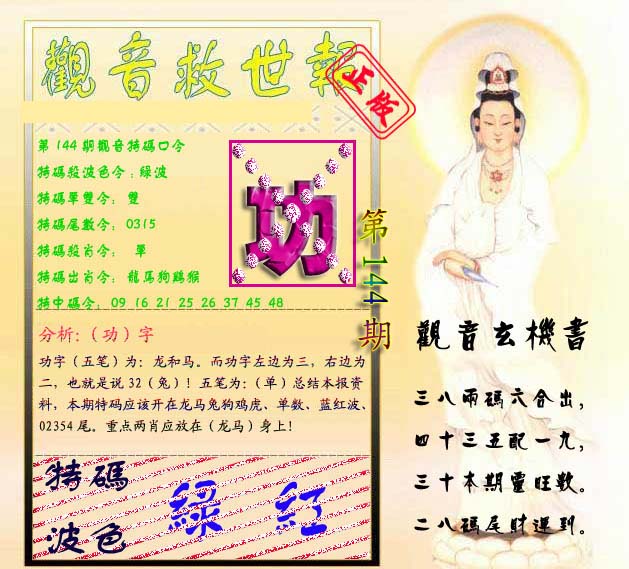 觀音救世報
正版
第144期觀音特碼口令
特碼殺波色令:綠波
特碼單雙令: 雙
特碼尾數令: 0315
特碼殺肖令: 單
特碼出肖令: 龍馬狗鷄猴
特中碼令: 09 16 21 25 26 37 45 48
功
第144期
分析:（功）字
功字（五笔）为：龙和马。而功字左边为三，右边为
二，也就是说 32（兔）！五笔为：（单）总结本报资
料，本期特码应该开在龙马兔狗鸡虎、单数、蓝红波、
02354 尾。重点两肖应放在（龙马）身上！
特碼
波色
綠 紅
觀音玄機書
三八兩碼六合出，
四十三五配一九，
三十本期靈旺数。
二八碼尾財運到。